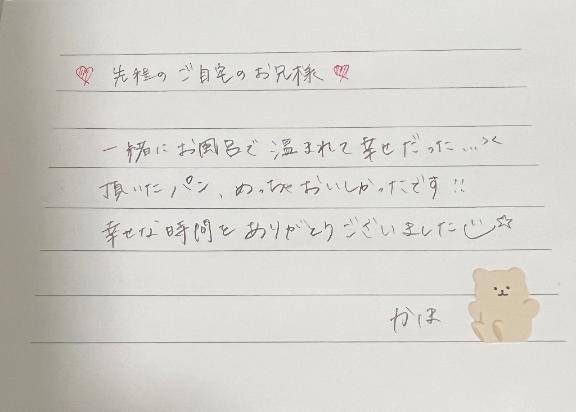 ♡ 先程のご自宅のお兄様 ♡
一緒にお風呂で温まれて幸せだった...><
頂いたパン、めっちゃおいしかったです!!
幸せな時間をありがとうございました☺☆
かほ